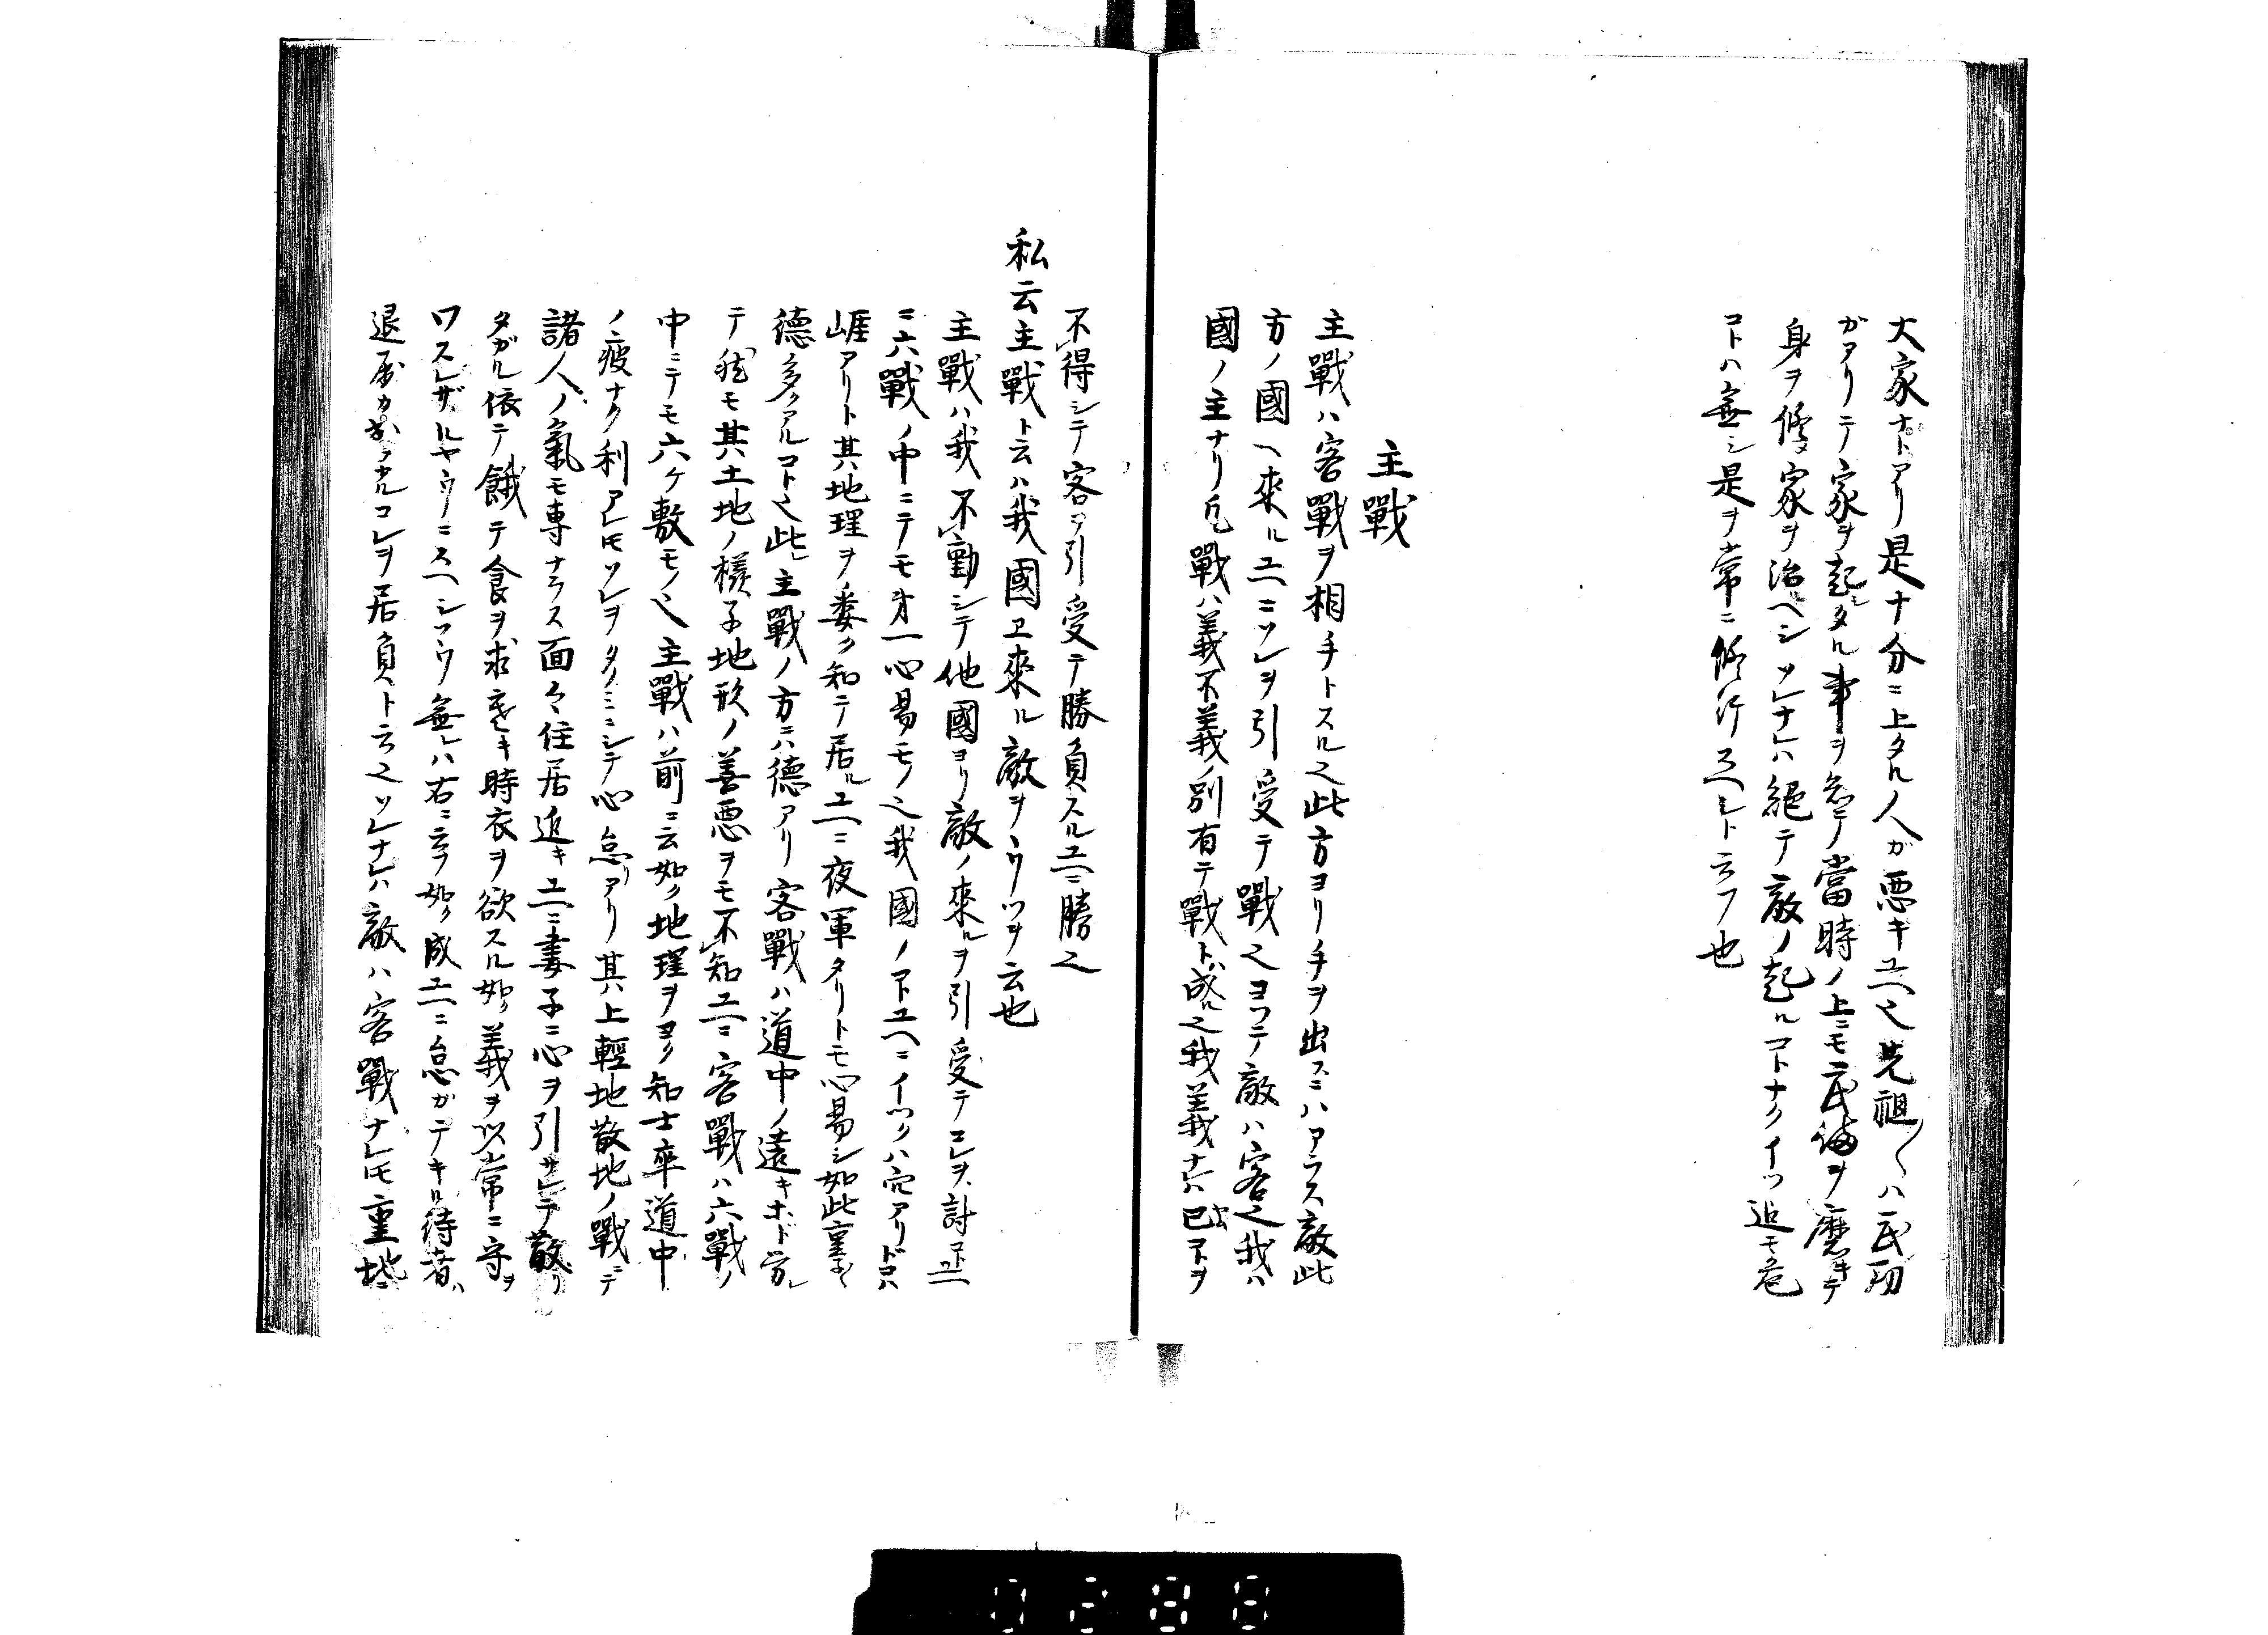 大家ナトアリ是十分ニ上タル人ガ悪キユヘ也先祖〱ハ武功
ガアリテ家ヲ起シタル事ヲ忘テ當時ノ上ニモ武備ヲ磨キテ
身ヲ修メ家ヲ治ヘシソレナレハ絕テ敵ノ起ルコトナクイツ迠モ危
コトハ無シ是ヲ常ニ修行スヘシト云フ也
主戰
主戰ハ客戰ヲ相手トスル也此方ヨリ手ヲ出スニハアラス敵此
方ノ國ヘ來ルユヘニソレヲ引受テ戰也ヨツテ敵ハ客也我ハ
國ノ主ナリ凡戰ハ義不義ノ別有テ戰ト成也我義ナレハ已コトヲ
不得シテ客ヲ引受テ勝負スルユヘニ勝也
私云主戰ト云ハ我國エ來ル敵ヲウツヲ云也
主戰ハ我不動シテ他國ヨリ敵ノ來ルヲ引受テコレヲ討コトユヘ
ニ六戰ノ中ニテモ才一心易モノ也我國ノコトユヘニイツクハ穴アリドコハ
崕アリト其地理ヲ委ク知テ居ルユヘニ夜軍タリトモ心易シ如此
德多クアルコト也此主戰ノ方ニハ德アリ客戰ハ道中ノ遠キホド労レ
テ然モ其土地ノ樣子地形ノ善悪ヲモ不知ユヘニ客戰ハ六戰ノ
中ニテモ六ケ敷モノ也主戰ハ前ニ云如ク地理ヲヨク知士卒道中
ノ疲ナク利アレトモソレヲタノミニシテ心怠リアリ其上輕地散地ノ戰ニテ
諸人ノ氣モ専ナラス面々住居近キユヘニ妻子ニ心ヲ引サレテ散リ
タガル依テ餓テ食ヲ求寒キ時衣ヲ欲スル如ク義ヲ以常ニ守ヲ
ワスレザルヤウニスヘシソウ無レハ右ニ云フ如ク成ユヘニ怠ガテキル待者ハ
退屈カ出テクルコレヲ居負ト云也ソレナレハ敵ハ客戰ナレトモ重地ニ